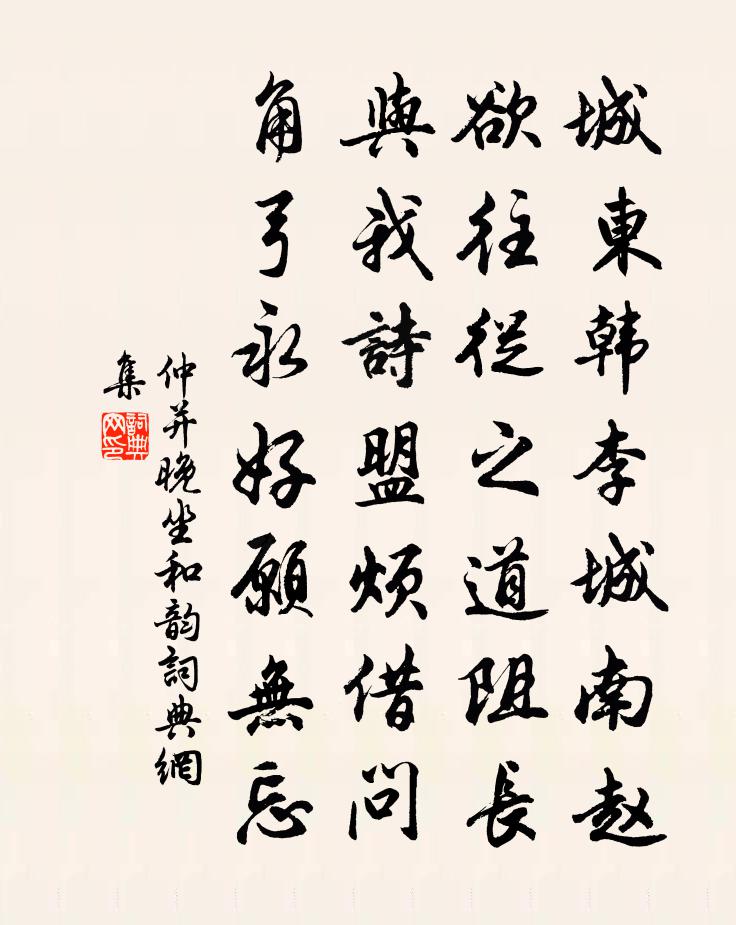 城東韩李城南赵
欲往從之道阻長
與我詩盟煩借問
角弓永好願無忘
仲并晚坐和韵詞典網
集
詞典
网印